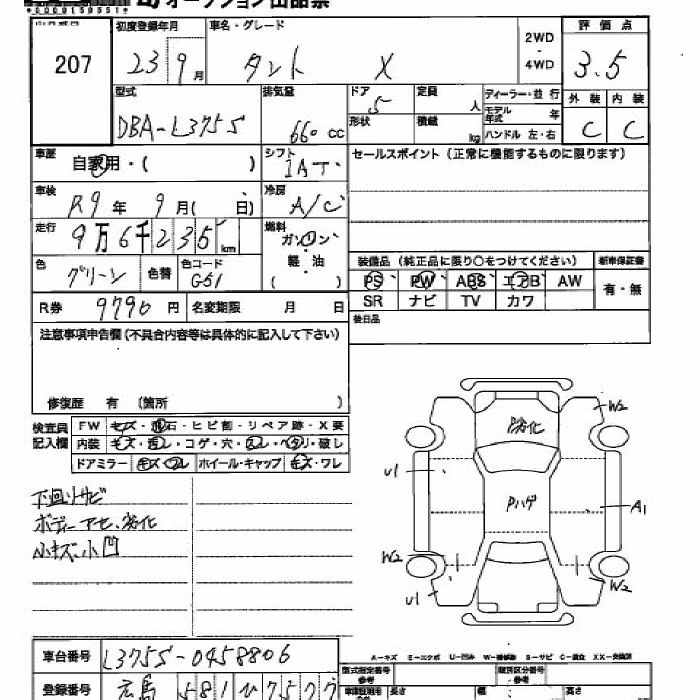 オークション出品票
207
初度登録年月 23 9月
車名・グレード タント X
2WD・4WD
評価点 3.5
型式 DBA-L375S
排気量 660 cc
ドア 5
定員 人
形状
積載 kg
ディーラー・並行
モデル年式 年
ハンドル 左・右
外装 内装
C C
車歴 自家用・( )
シフト IAT
セールスポイント(正常に機能するものに限ります)
車検 R9年 9月( 日)
冷房 A/C
走行 9万6千235km
燃料 ガソリン・軽・油
( )
色 グリーン 色替 色コード G51
装備品(純正品に限り○をつけてください) 新車保証書
PS PW ABS エアB AW 有・無
SR ナビ TV カワ
R券 9790円 名変期限 月 日
後日品
注意事項申告欄(不具合内容等は具体的に記入して下さい)
修復歴 有 (箇所 )
検査員記入欄
FW キズ・飛石・ヒビ割・リペア跡・X要
内装 キズ・汚レ・コゲ・穴・スレ・ヘタリ・破レ
ドアミラー キズ・ワレ ホイール・キャップ キズ・ワレ
下回リサビ
ボディーアセ、劣化
小キズ、小凹
劣化
Pハゲ
W2
U1
A1
W2
U1
W2
A-キズ E-エクボ U-凹み W-補修跡 S-サビ C-腐食 XX-交換済
車台番号 L375S-0458806
登録番号 広島 581 ひ 7577
型式指定番号 参考
類別区分番号 参考
長さ 幅 高さ